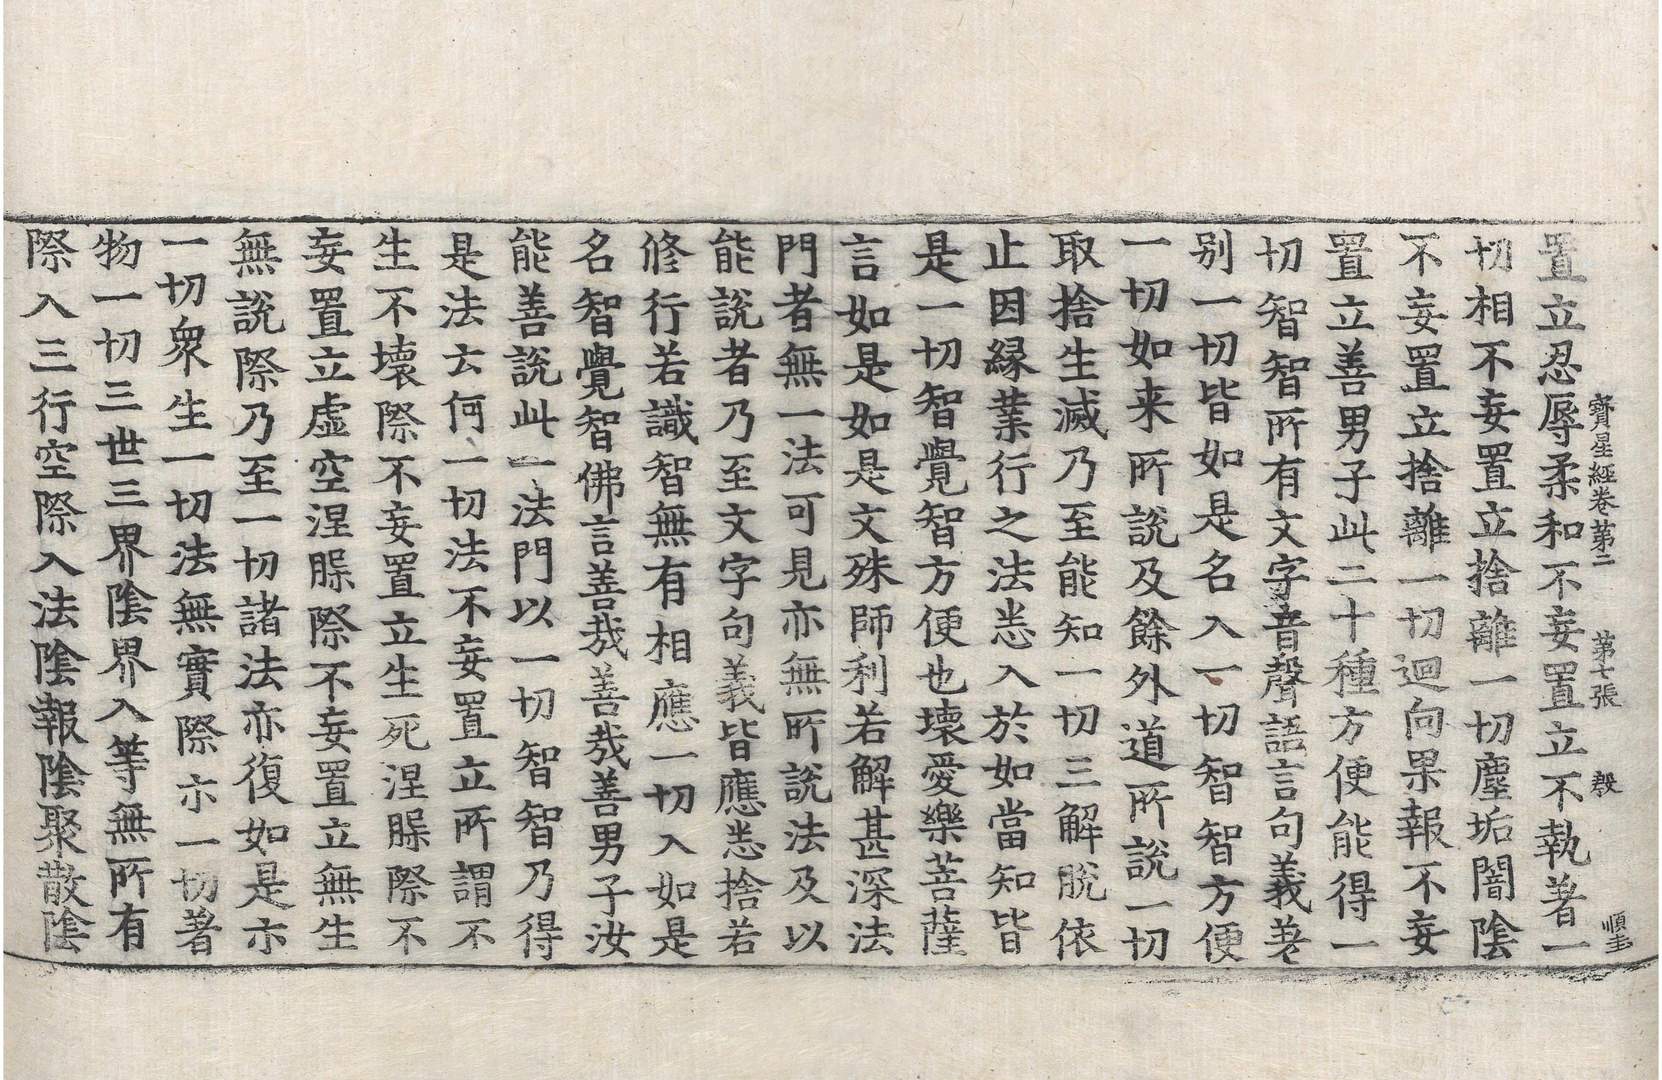 置立忍辱柔和不妄置立不執著一
寶星經卷第二 第七張 殷 順圭
切相不妄置立捨離一切塵垢闇陰
不妄置立捨離一切迴向果報不妄
置立善男子此二十種方便能得一
切智智所有文字音聲語言句義差
别一切皆如是名入一切智智方便
一切如来所說及餘外道所說一切
取捨生滅乃至能知一切三解脫依
止因縁業行之法悉入於如當知皆
是一切智覺智方便也壞愛樂菩薩
言如是如是文殊師利若解甚深法
門者無一法可見亦無所說法及以
能說者乃至文字句義皆應悉捨若
修行若識智無有相應一切入如是
名智覺智佛言善哉善哉善男子汝
能善說此一法門以一切智智乃得
是法云何一切法不妄置立所謂不
生不壞際不妄置立生死涅槃際不
妄置立虛空涅槃際不妄置立無生
無說際乃至一切諸法亦復如是亦
一切衆生一切法無實際亦一切著
物一切三世三界陰界入等無所有
際入三行空際入法陰報陰聚散陰